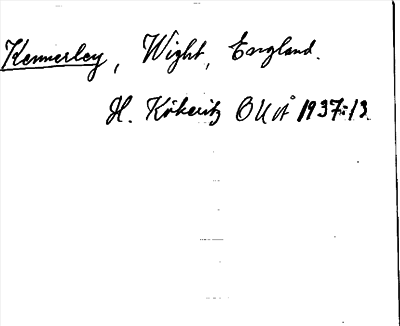 Kennerley, Wight, England.
H. Kökeritz OUÅ 1937:13